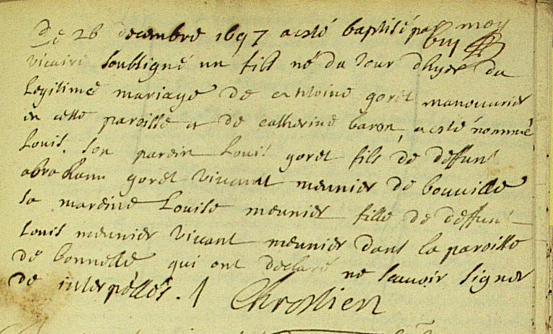 Le 26 decembre 1697 a esté baptisé par moy
vicaire soussigné un fils né du jour d'hyer du
legitime mariage de antoine goret manouvrier
en cette paroisse et de catherine baron, a esté nommé
Louis. son parein Louis goret fils de deffunt
abraham goret vivant meunier de bonville
sa mareine Louise meunier fille de deffunt
Louis meunier vivant meunier dans la paroisse
de bonnelle qui ont declaré ne scavoir signer
de interpellés.
Chrestien